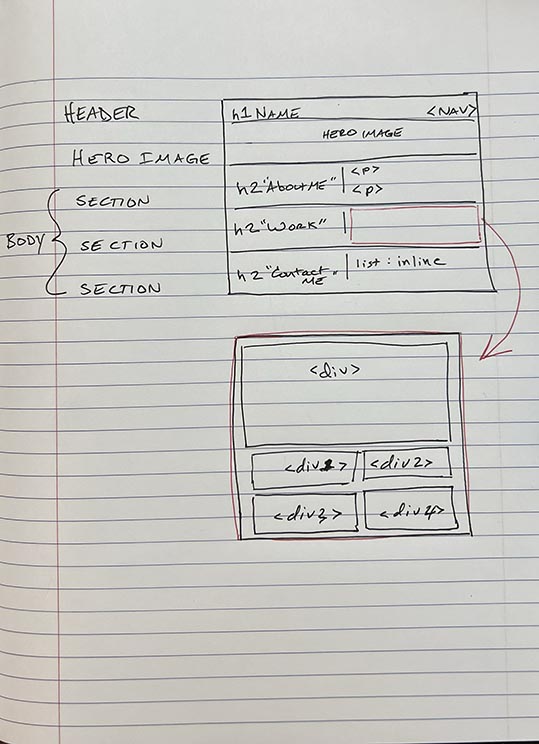 HEADER
HERO IMAGE
SECTION
BODY
SECTION
SECTION
h1 NAME
<NAV>
HERO IMAGE
h2 "ABOUT ME"
<P>
<P>
h2 "WORK"
h2 "Contact
ME"
list : inline
<div>
<div1>
<div2>
<div3>
<div4>